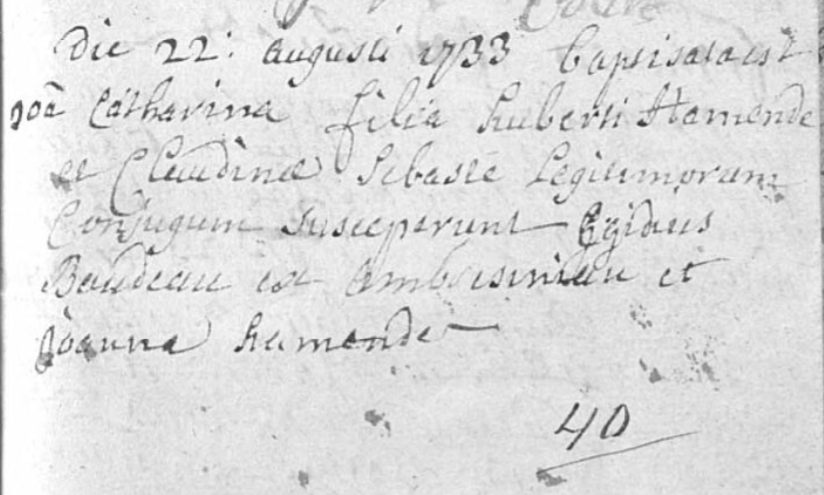 Die 22: augusti 1733 baptisata est
Joâ Catharina filia huberti Hamende
et Claudinæ Sebaste Legitimorum
Conjugum susceperunt Egidius
Baudeau ex et
Joanna hamende
40